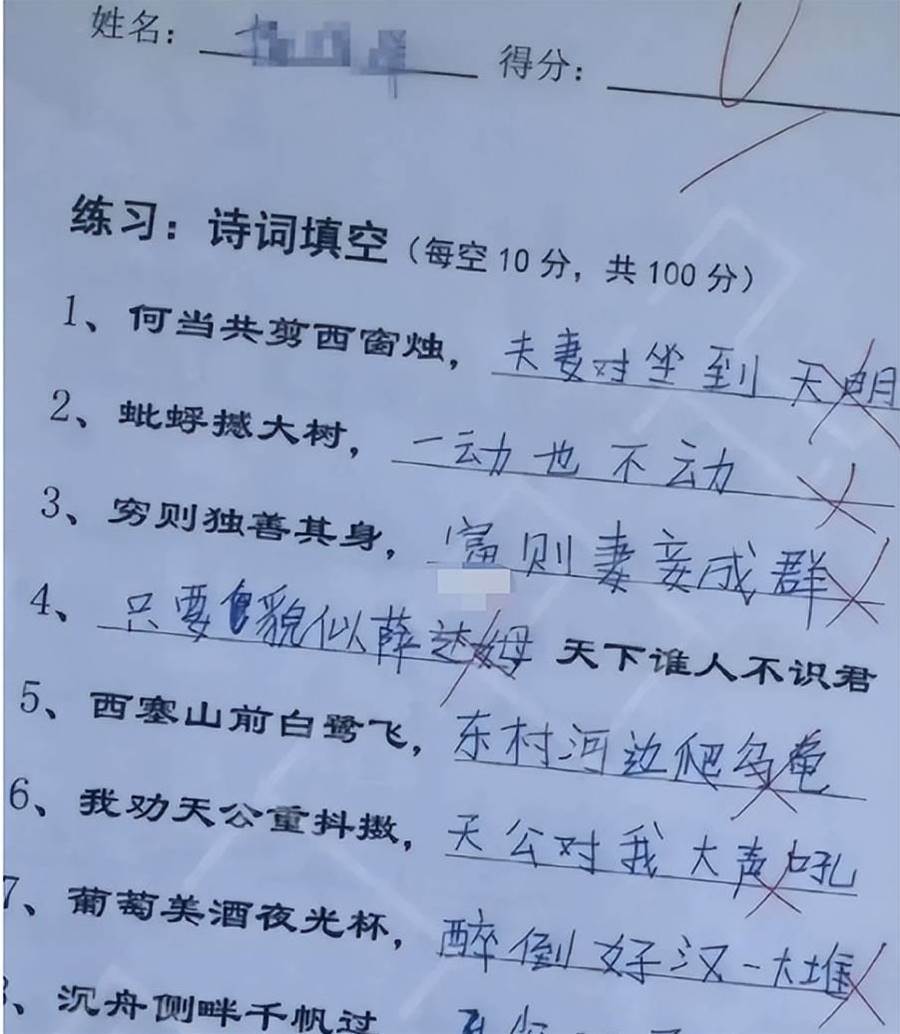 姓名： 得分： 0
练习：诗词填空（每空10分，共100分）
1、何当共剪西窗烛，夫妻对坐到天明
2、蚍蜉撼大树，一动也不动
3、穷则独善其身，富则妻妾成群
4、只要貌似薛达姆 天下谁人不识君
5、西塞山前白鹭飞，东村河边爬乌龟
6、我劝天公重抖擞，天公对我大声吼
7、葡萄美酒夜光杯，醉倒好汉一大堆
、沉舟侧畔千帆过